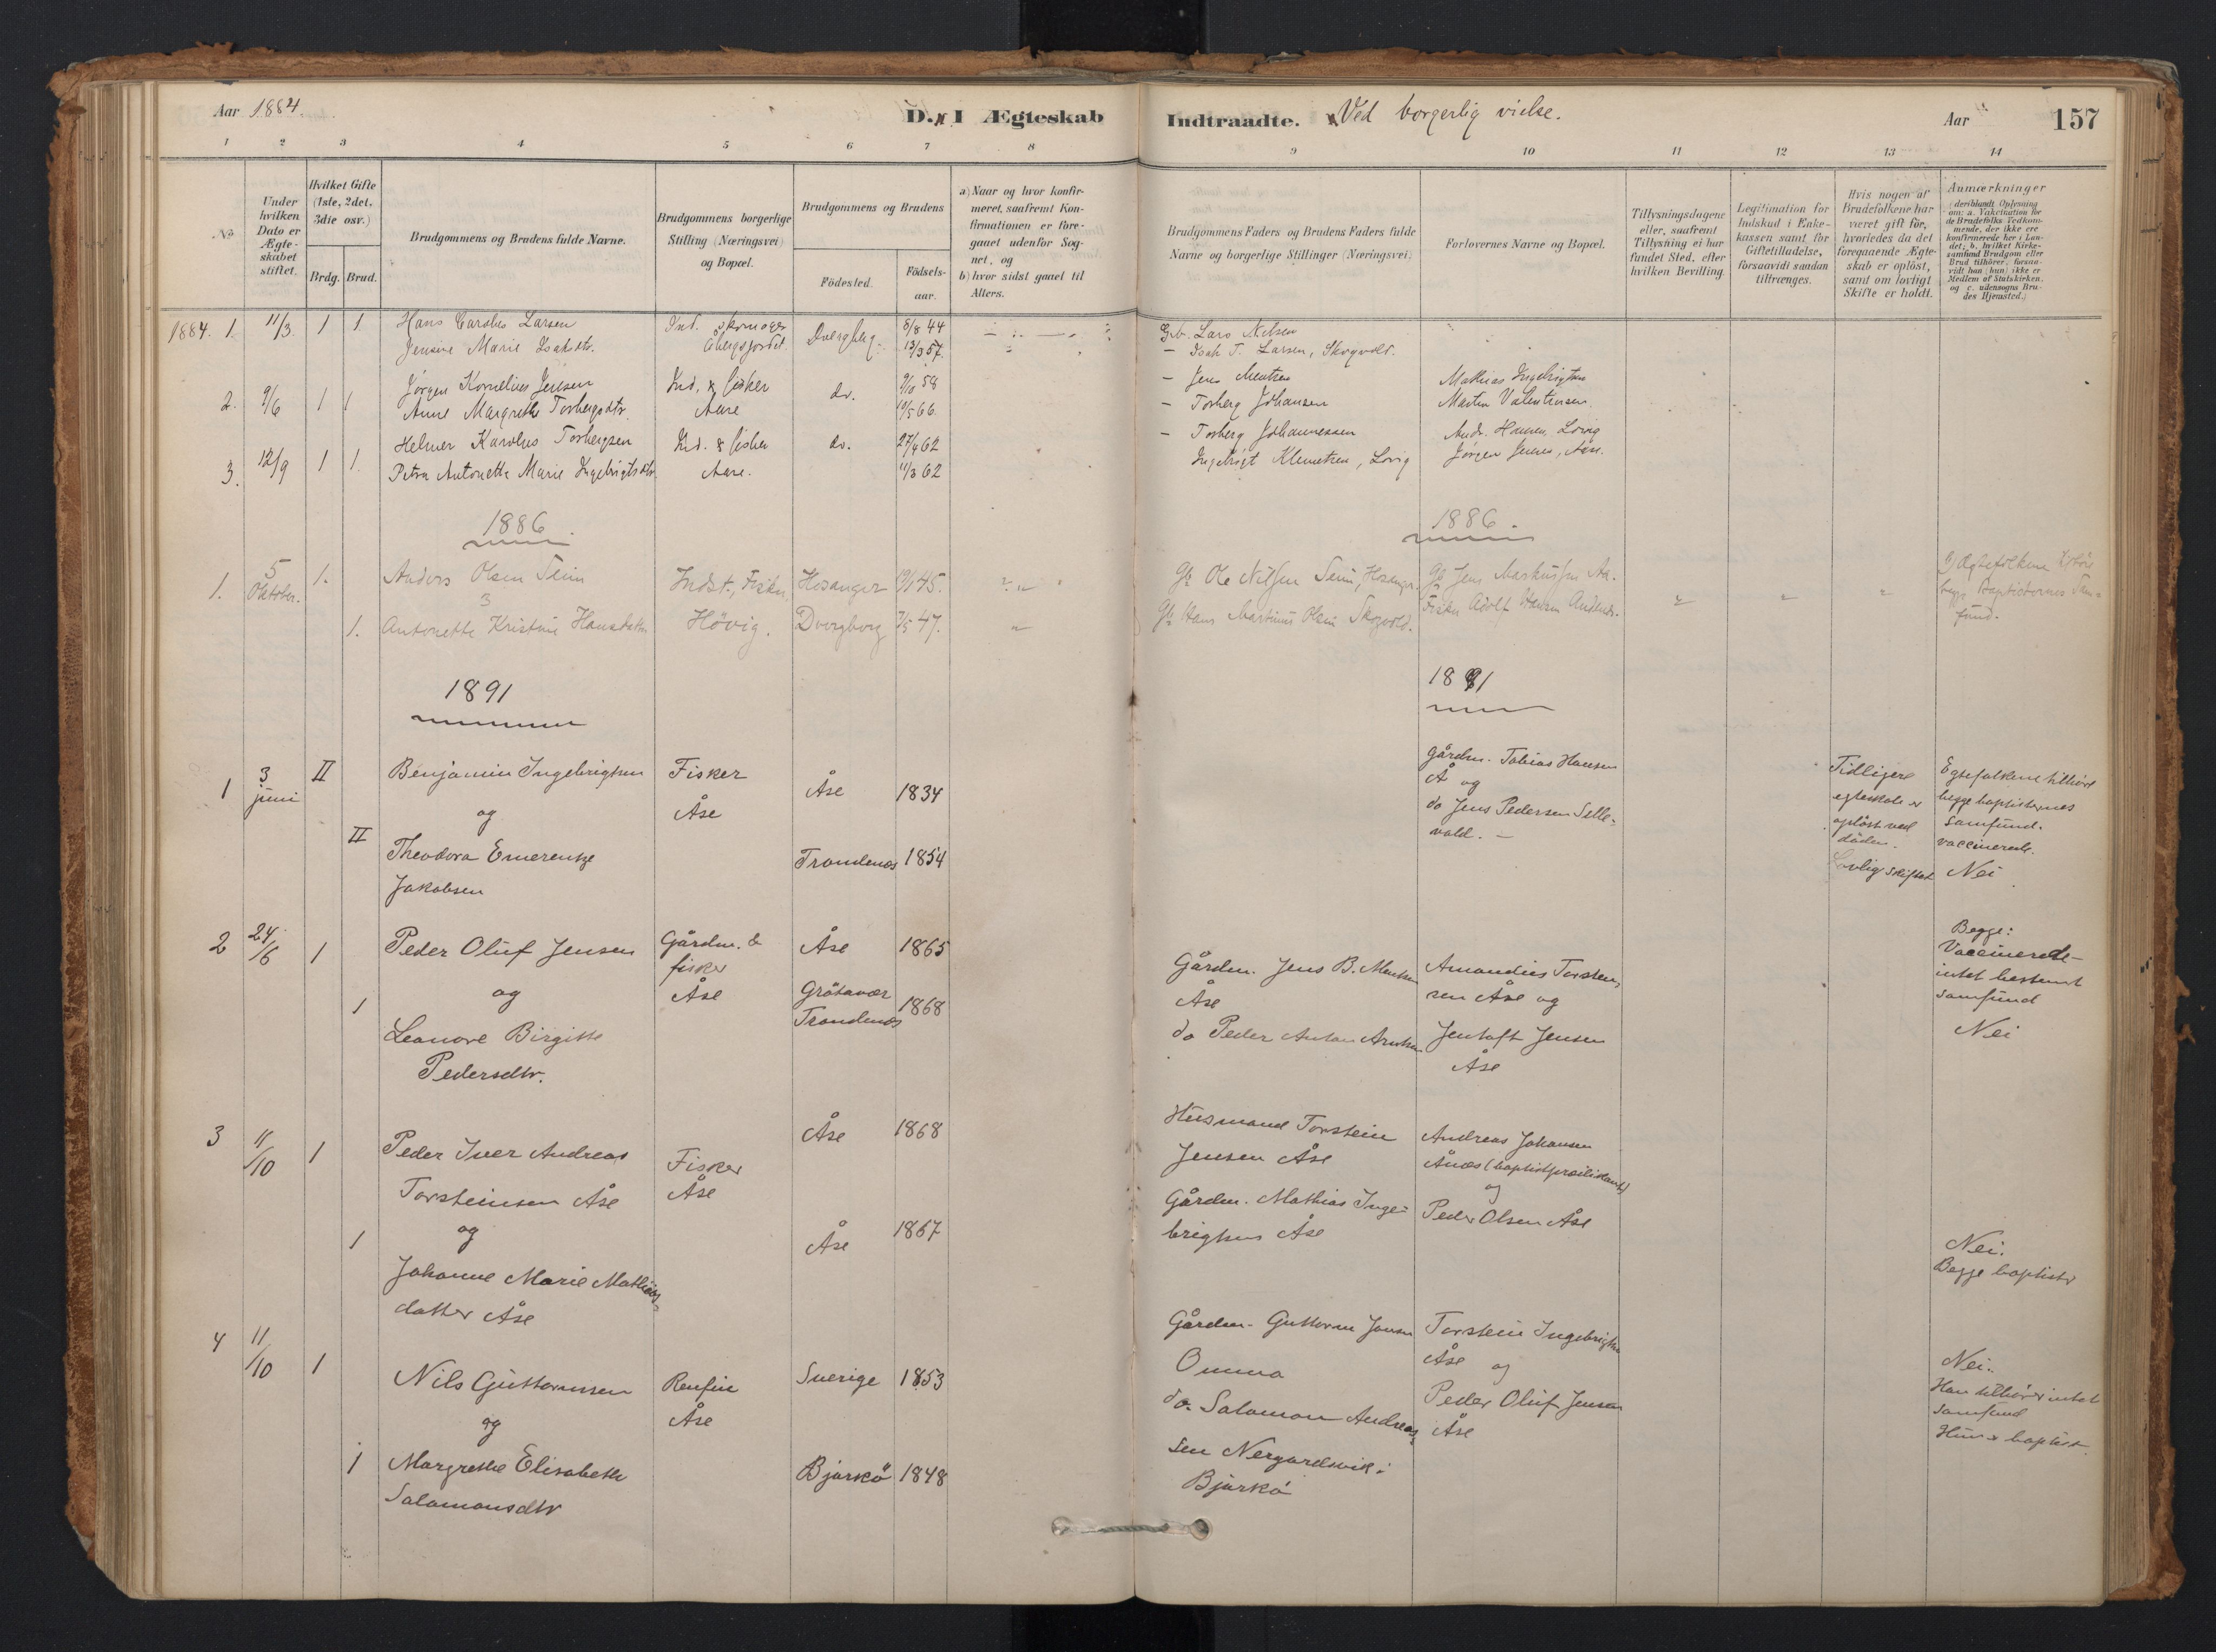 Aar 1884.
D. I Ægteskab Indtraadte. Ved borgerlig vielse.
Aar 157
1 2 3 4 5 6 7 8 9 10 11 12 13 14
No
Under hvilken Dato er Ægteskabet stiftet.
Hvilket Gifte (1ste, 2det, 3die osv.)
Brdg. Brud.
Brudgommens og Brudens fulde Navne.
Brudgommens borgerlige Stilling (Næringsvei) og Bopæl.
Brudgommens og Brudens
Födested.
Födselsaar.
a) Naar og hvor konfirmeret, saafremt Konfirmationen er foregaaet udenfor Sognet, og
b) hvor sidst gaaet til Alters.
Brudgommens Faders og Brudens Faders fulde Navne og borgerlige Stillinger (Næringsvei)
Forlovernes Navne og Bopæl.
Tillysningsdagene eller, saafremt Tillysning ei har fundet Sted, efter hvilken Bevilling.
Legitimation for Indskud i Enkekassen samt for Giftetilladelse, forsaavidt saadan tiltrænges.
Hvis nogen af Brudefolkene har været gift før, hvorledes da det foregaaende Ægteskab er oplöst, samt om lovligt Skifte er holdt.
Anmærkninger (deriblandt Oplysning om: a. Vakcination for de Brudefolks Vedkommende, der ikke ere konfirmerede her i Landet; b. hvilket Kirkesamfund Brudgom eller Brud tilhörer, forsaavidt han (hun) ikke er Medlem af Statskirken, og c. udensogns Brudes Hjemsted.)
1884. 1. 11/3. 1 1 Hans Carolus Larsen Ind. Dvergberg 8/8 44 Gb. Lars Nilsen
Jensine Marie Isaksdtr. 13/3 57. – Isak T. Larsen, Skogvold.
2. 9/6 1 1 Jørgen Kornelius Jensen Ind. & fisker do. 9/10 58 – Jens Mentsen Mathias Ingebrigtsen
Anne Margrethe Torbergsdtr. Aase 10/5 66. – Torberg Johansen Martin Valentinsen.
3. 12/9 1 1. Helmer Karolus Torbergsen Ind. & fisker do. 27/4 62 – Torberg Johannessen Andr. Hansen, Lovig
Petra Antonette Marie Ingebrigtsdtr. Aase. 11/3 62 Ingebrigt Klemetsen, Lovig Jørgen Jensen, Aase.
1886. 1886.
1. 5 Oktober. 1. Anders Olsen Seim Indst., Fisker, Hosanger 19/1 45. Gb. Ole Nilssen Seim, Hosanger. Gb. Jens Markussen Aa.
1. Antonette Kristine Hansdatter Hövig. Dvergberg 7/5 47. Gb. Hans Martinus Olsen Skogvold. Fisker Adolf Hansen Andenes.
b) Ægtefolkene tilhöre
begge Baptisternes Sam=
fund.
1891 1891
1 3 juni II Benjamin Ingebrigtsen Fisker Åse 1834
og Åse
II Theodora Emerentze Trondenæs 1854
Jakobsen
gårdm. Tobias Hansen
Å og
do Jens Pedersen Selle-
vold. –
Tidligere
egteskab er
opløst ved
døden.
Lovlig skiftet
Egtefolkene tilhøre
begge baptisternes
samfund.
vaccinerede.
Nei
2 24/6 1 Peder Oluf Jensen Gårdm. & Åse 1865
fisker
og Åse Grötavær 1868
1 Leonore Birgitte Trondenæs
Pedersdtr.
Gårdm. Jens B. Mentsen
Åse
do Peder Anton Arntsen
Amandius Torsten-
sen Åse og
Jentoft Jensen
Åse
Begge:
Vaccinerede –
intet bestemt
samfund
Nei
3 11/10 1 Peder Iver Andreas Fisker Åse 1868
Torsteinsen Åse Åse
og
1 Johanne Marie Mathias- Åse 1867
datter Åse
Husmand Torstein
Jensen Åse
Gårdm. Mathias Inge-
brigtsen Åse
Andreas Johansen
Ånæs (baptistprædikant)
og
Peder Olsen Åse
Nei.
Begge baptister
4 11/10 1 Nils Guttormsen Renfin Sverige 1853
og Åse
1 Margrethe Elisabeth Bjarkö 1848
Salomonsdtr
Gårdm. Guttorm Jonsen
Omma
do. Salomon Andreas-
sen Nergårdsvik i
Bjarkö
Torstein Ingebrigtsen
Åse og
Peder Oluf Jensen
Åse
Nei.
Han tilhører intet
samfund
Hun er baptist.